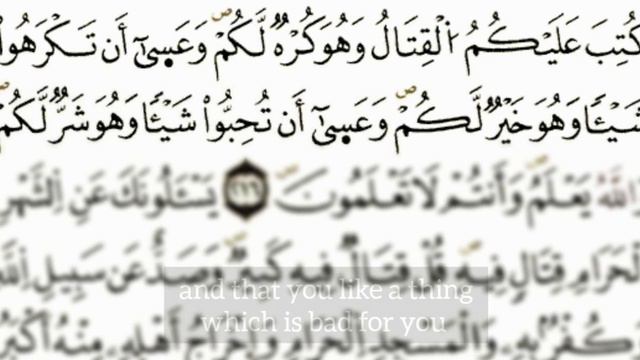 كُتِبَ عَلَيْكُمُ ٱلْقِتَالُ وَهُوَ كُرْهٌ لَّكُمْ ۖ وَعَسَىٰٓ أَن تَكْرَهُوا۟
شَيْـًٔا وَهُوَ خَيْرٌ لَّكُمْ ۖ وَعَسَىٰٓ أَن تُحِبُّوا۟ شَيْـًٔا وَهُوَ شَرٌّ لَّكُمْ ۗ
ٱللَّهُ يَعْلَمُ وَأَنتُمْ لَا تَعْلَمُونَ ٢١٦ يَسْـَٔلُونَكَ عَنِ ٱلشَّهْرِ
ٱلْحَرَامِ قِتَالٍ فِيهِ ۖ قُلْ قِتَالٌ فِيهِ كَبِيرٌ ۖ وَصَدٌّ عَن سَبِيلِ ٱللَّهِ
وَكُفْرٌۢ بِهِۦ وَٱلْمَسْجِدِ ٱلْحَرَامِ وَإِخْرَاجُ أَهْلِهِۦ مِنْهُ أَكْبَرُ
and that you like a thing
which is bad for you